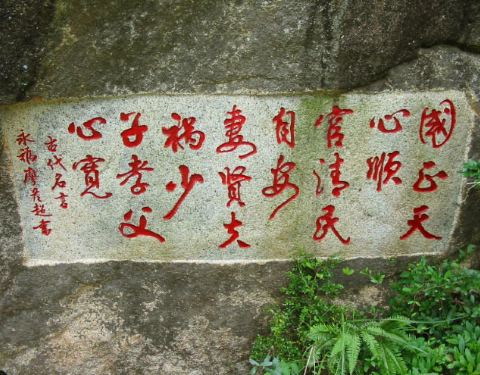 國正天
心順
官清民
自安
妻賢夫
禍少
子孝父
心寬
古代名言
永福超書